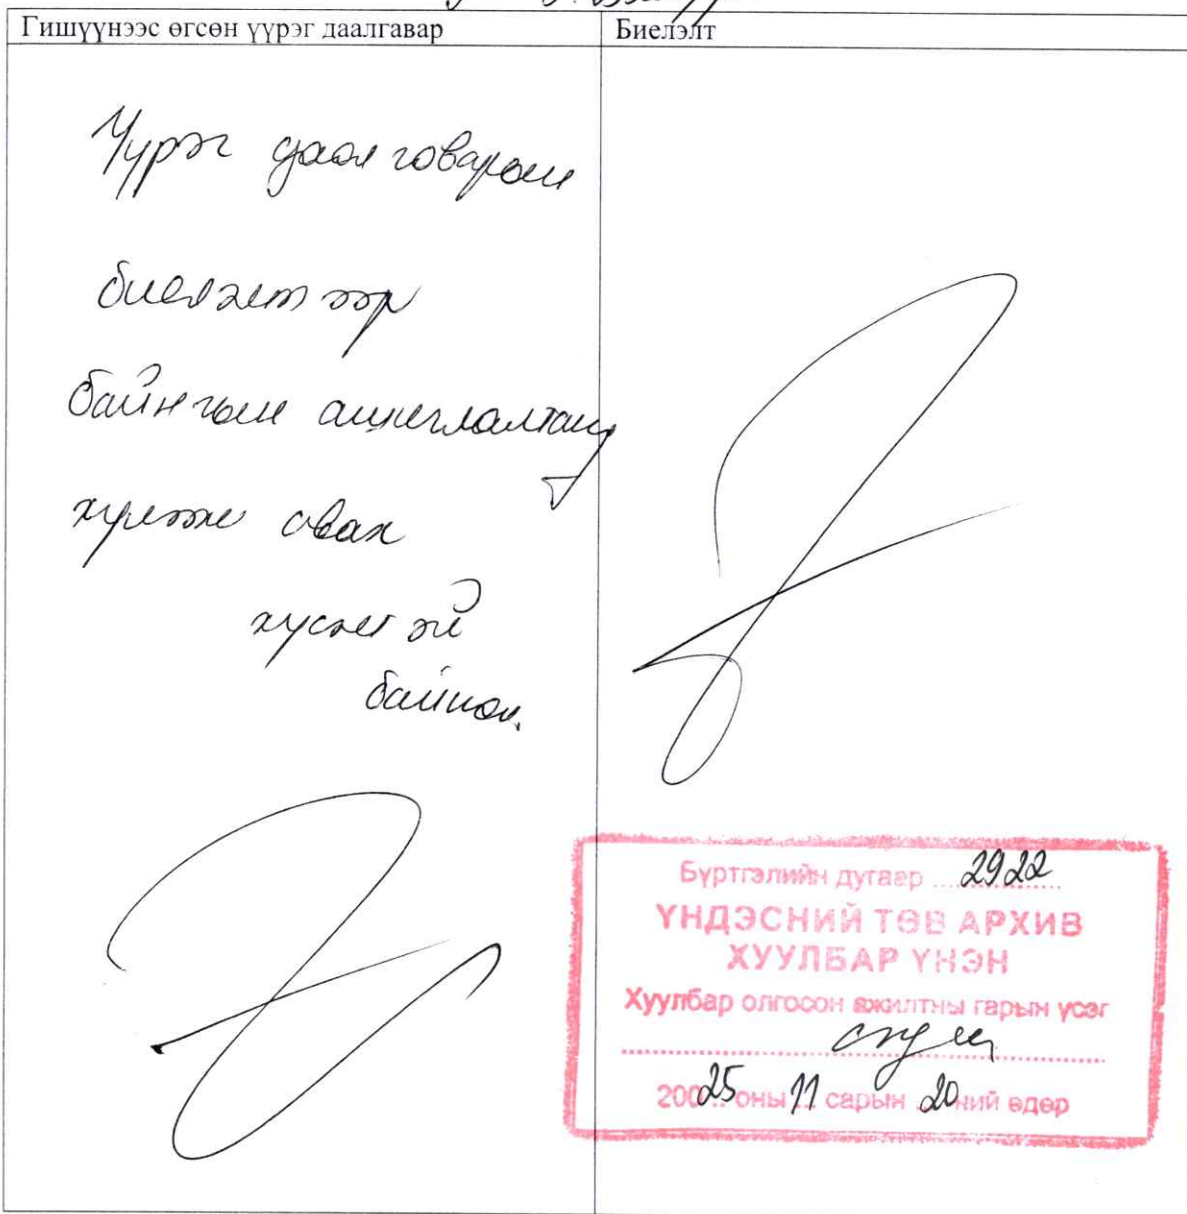 Гишүүнээс өгсөн үүрэг даалгавар
Биелэлт
Үүрэг даалгаварын
биелэлтээр
байнгын ашиглалтанд
хүлээж авах
хүсэлтэй
байна.
Бүртгэлийн дугаар ...2922...
ҮНДЭСНИЙ ТӨВ АРХИВ
ХУУЛБАР ҮНЭН
Хуулбар олгосон ажилтны гарын үсэг
20025 оны 11 сарын 20 ний өдөр